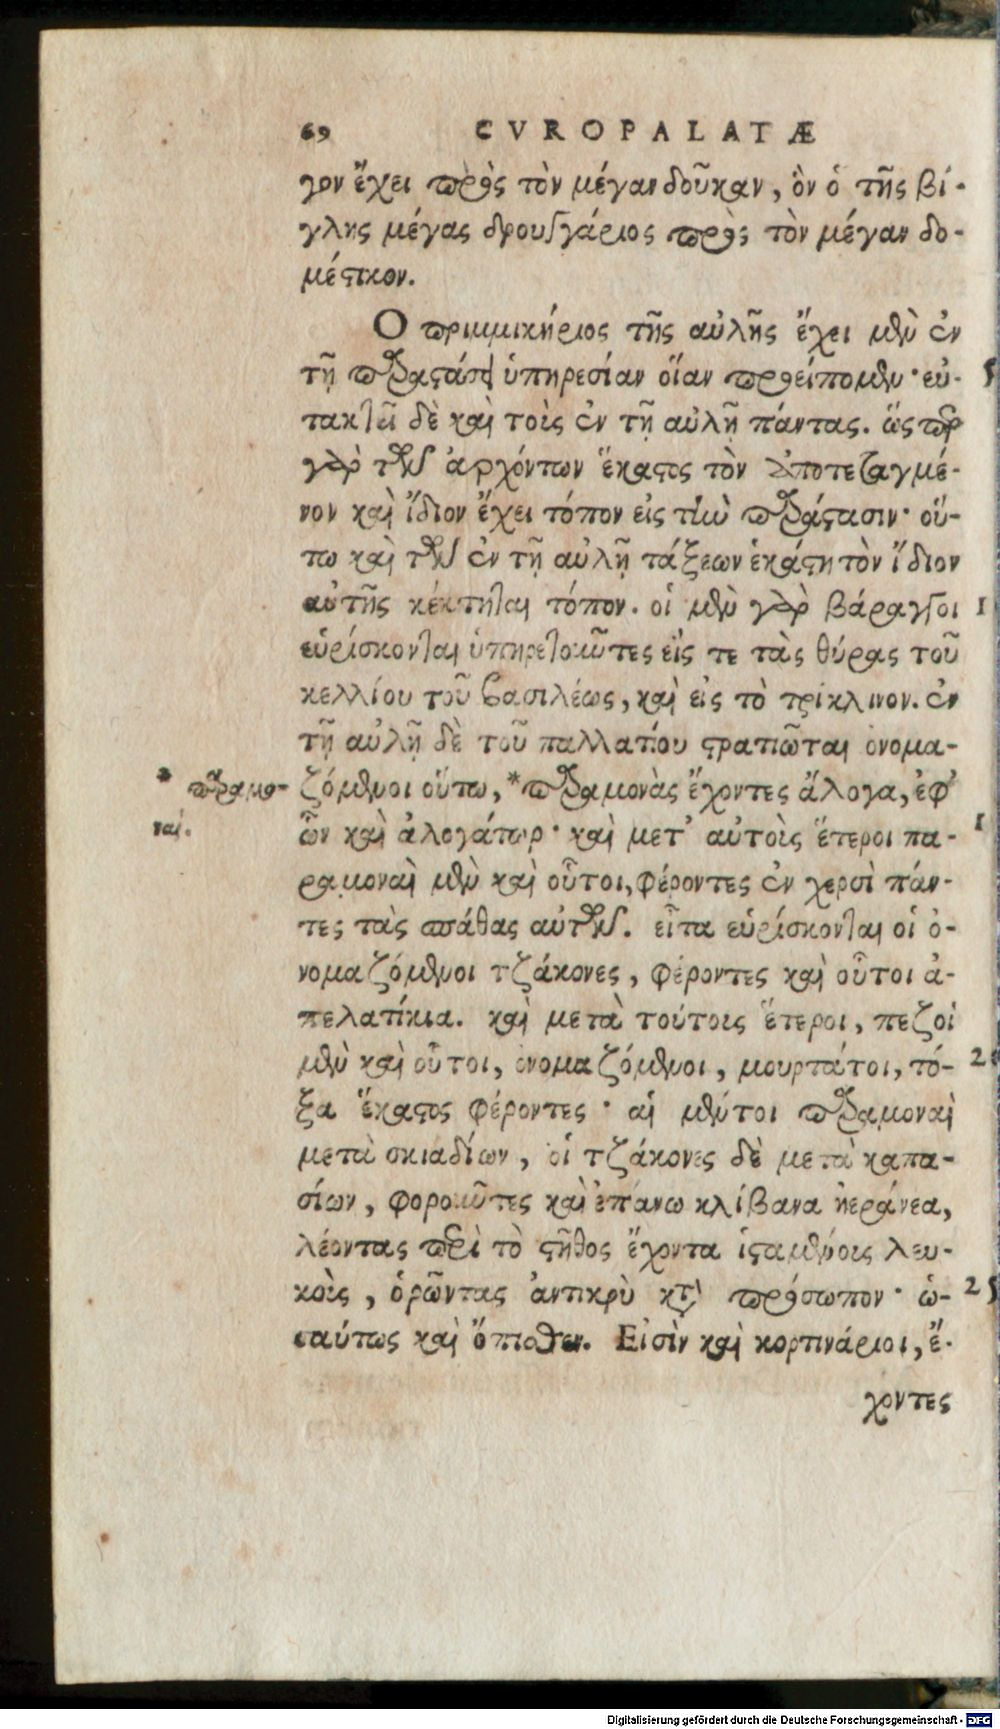 69 CVROPALATÆ
γον ἔχει πρὸς τὸν μέγαν δοῦκαν, ὃν ὁ τῆς βί-
γλης μέγας δρουγγάριος πρὸς τὸν μέγαν δο-
μέστικον.
Ο πριμμικήριος τῆς αὐλῆς ἔχει μὲν ἐν
τῇ παραστάσει ὑπηρεσίαν οἵαν προείπομεν· εὐ- 5
τακτεῖ δὲ καὶ τοὶς ἐν τῇ αὐλῇ πάντας. ὥσπερ
γὰρ τῶν ἀρχόντων ἕκαστος τὸν ἀποτεταγμέ-
νον καὶ ἴδιον ἔχει τόπον εἰς τὴν παράστασιν· οὕ-
τω καὶ τῶν ἐν τῇ αὐλῇ τάξεων ἑκάστη τὸν ἴδιον
αὐτῆς κέκτηται τόπον. οἱ μὲν γὰρ βάραγγοι 1
εὑρίσκονται ὑπηρετοῦντες εἴς τε τὰς θύρας τοῦ
κελλίου τοῦ βασιλέως, καὶ εἰς τὸ τρίκλινον. ἐν
τῇ αὐλῇ δὲ τοῦ παλλατίου στρατιῶται ὀνομα-
ζόμενοι οὕτω, *παραμονὰς ἔχοντες ἄλογα, ἐφ'
* παραμο-
ναί.
ὧν καὶ ἀλογάτωρ· καὶ μετ' αὐτοὶς ἕτεροι πα- 1
ραμοναὶ μὲν καὶ οὗτοι, φέροντες ἐν χερσὶ πάν-
τες τὰς σπάθας αὐτῶν. εἶτα εὑρίσκονται οἱ ὀ-
νομαζόμενοι τζάκονες, φέροντες καὶ οὗτοι ἀ-
πελατίκια. καὶ μετὰ τούτοις ἕτεροι, πεζοὶ
μὲν καὶ οὗτοι, ὀνομαζόμενοι, μουρτάτοι, τό- 2
ξα ἕκαστος φέροντες· αἱ μέντοι παραμοναὶ
μετὰ σκιαδίων, οἱ τζάκονες δὲ μετὰ καπα-
σίων, φοροῦντες καὶ ἐπάνω κλίβανα ἠεράνεα,
λέοντας περὶ τὸ στῆθος ἔχοντα ἱσταμένοις λευ-
κοὶς, ὁρῶντας ἀντικρὺ κτ' πρόσωπον· ὡ- 25
σαύτως καὶ ὄπισθεν. Εἰσὶν καὶ κορτινάριοι, ἔ-
χοντες
Digitalisierung gefördert durch die Deutsche Forschungsgemeinschaft - DFG